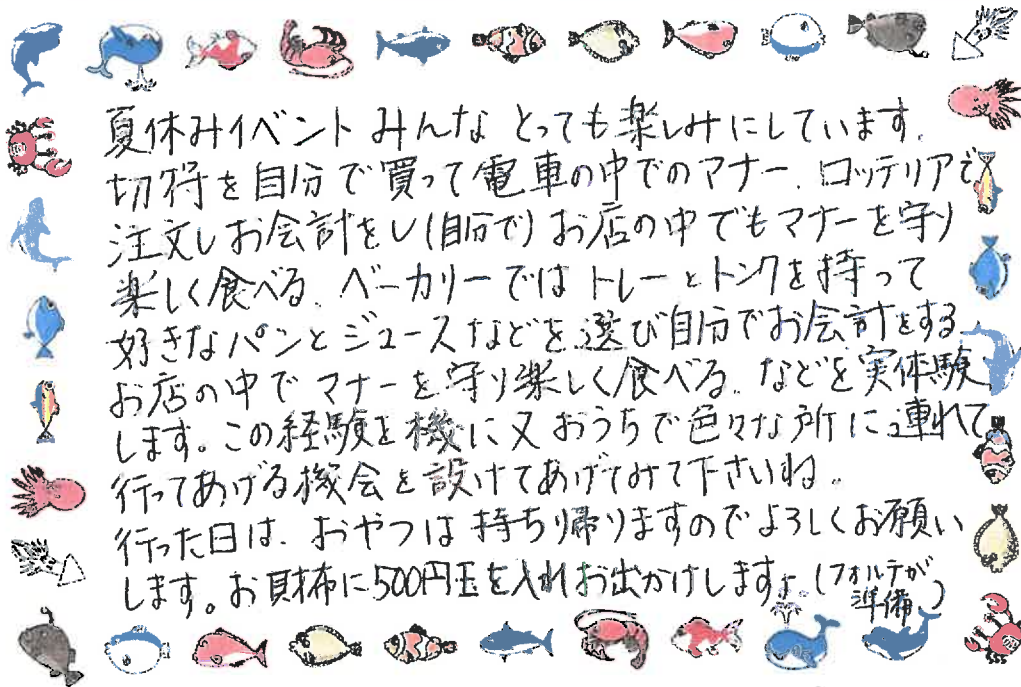 夏休みイベント みんな とっても楽しみにしています.
切符を自分で買って電車の中でのマナー. ロッテリアで
注文しお会計をし(自分で) お店の中でもマナーを守り
楽しく食べる. ベーカリーでは トレーとトングを持って
好きなパンとジュースなどを選び自分でお会計をする
お店の中でマナーを守り楽しく食べる. などを実体験
します。この経験を機に又おうちで色々な所に連れて
行ってあげる機会を設けてあげてみて下さいね。
行った日は. おやつは持ち帰りますのでよろしくお願い
します。お財布に500円玉を入れお出かけします. (フォルテが
準備)